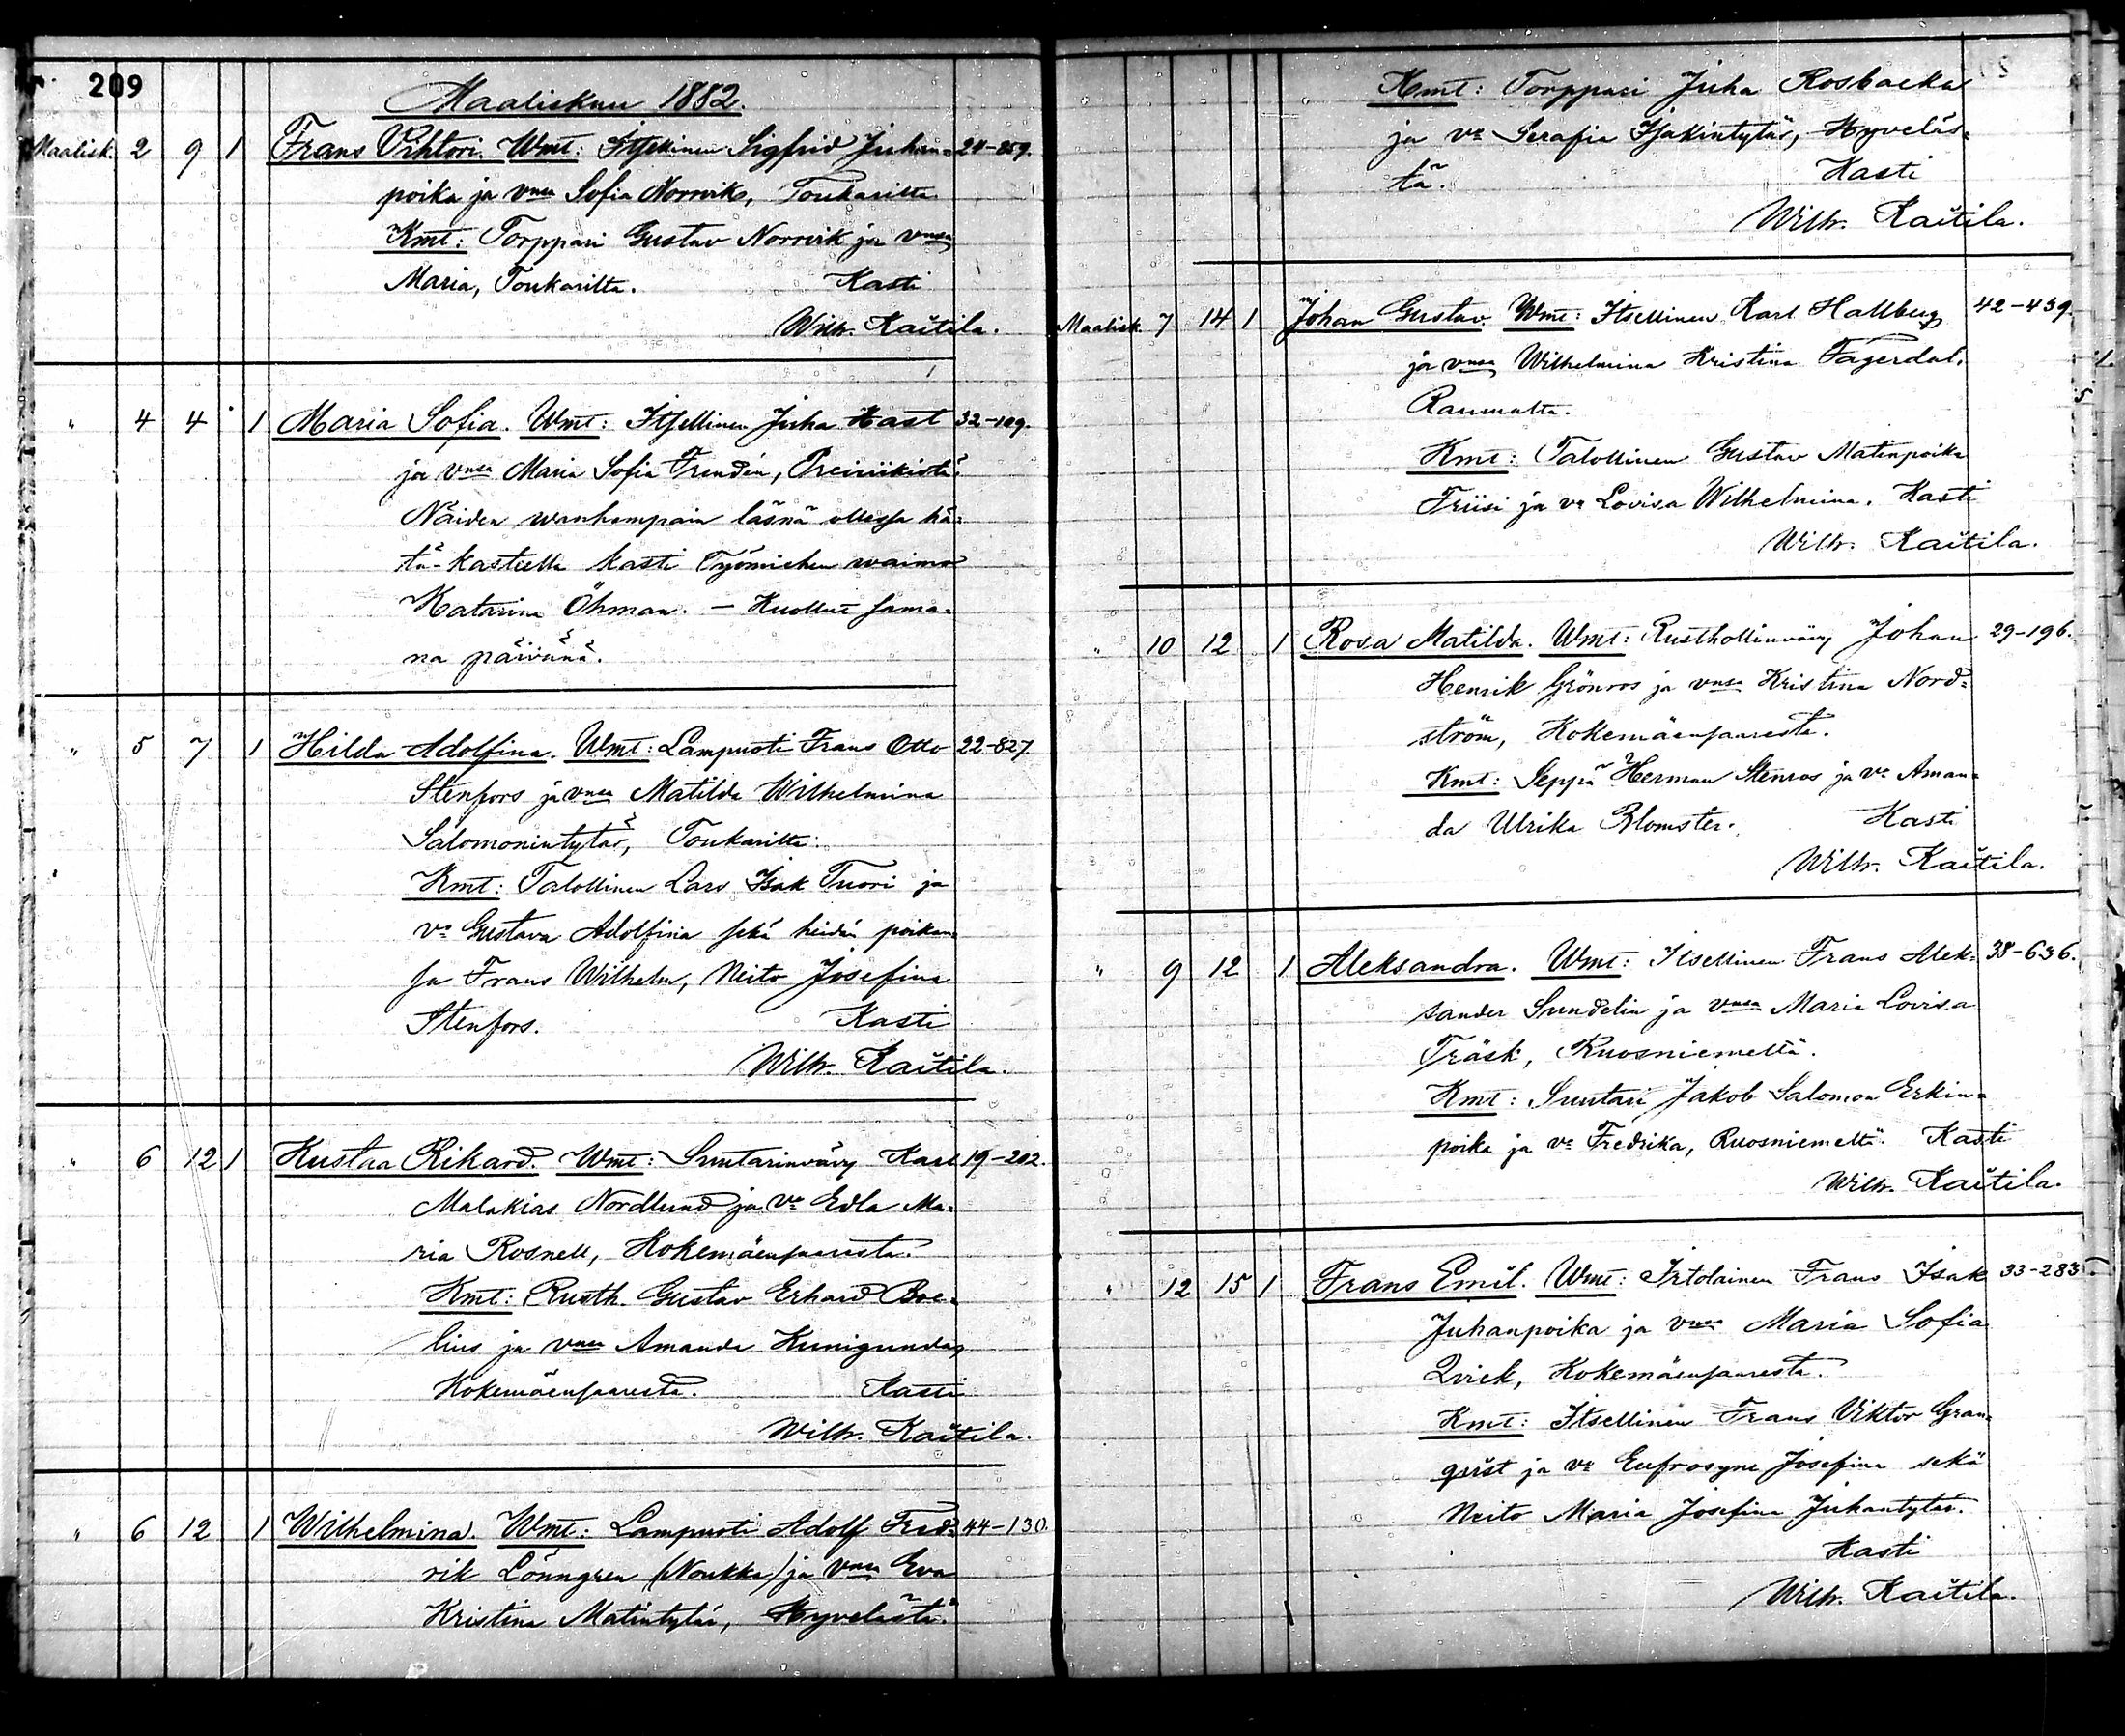 209
Maaliskuu 1882.
Maalisk. 2 9 1 Frans Vihtori. Wmt: Itsellinen Sigfrid Juhan= 24-859.
poika ja vnsa Sofia Norrvik, Toukarilta.
Kmt: Torppari Gustav Norrvik ja vnsa
Maria, Toukarilta. Kasti
Wilh. Kaitila.
" 4 4 1 Maria Sofia. Wmt: Itsellinen Juha Hast 32-109.
ja vnsa Maria Sofia Trendén, Preiviikistä.
Näiden wanhempain läsnä ollessa hä=
tä-kasteella kasti Työmiehen waimo
Katarina Öhman. — Kuollut sama=
na päivänä.
" 5 7 1 Hilda Adolfina. Wmt: Lampuoti Frans Otto 22-827.
Stenfors ja vnsa Matilda Wilhelmina
Salomonintytär, Toukarilta.
Kmt: Talollinen Lars Isak Tuori ja
va Gustava Adolfina sekä heidän poikan=
sa Frans Wilhelm, Neito Josefina
Stenfors. Kasti
Wilh. Kaitila.
" 6 12 1 Kustaa Rikard. Wmt: Suutarinvävy Karl 19-202.
Malakias Nordlund ja va Edla Ma=
ria Rosnell, Kokemäensaaresta.
Kmt: Rusth. Gustav Erhard Boe=
lius ja vnsa Amanda Kunigunda,
Kokemäensaaresta. Kasti
Wilh. Kaitila.
" 6 12 1 Wilhelmina. Wmt: Lampuoti Adolf Fred= 44-130.
rik Lönngren (Noukka) ja vnsa Eva
Kristina Matintytär, Hyvelästä.
Kmt: Torppari Juha Rosbacka
ja va Serafia Isakintytär, Hyveläs=
tä. Kasti
Wilh. Kaitila.
Maalisk. 7 14 1 Johan Gustav. Wmt: Itsellinen Karl Hallberg 42-439.
ja vnsa Wilhelmina Kristina Fagerdal,
Raumalta.
Kmt: Talollinen Gustav Matinpoika
Friisi ja va Lovisa Wilhelmina. Kasti
Wilh. Kaitila.
" 10 12 1 Rosa Matilda. Wmt: Rusthollinvävy Johan 29-196.
Henrik Grönroos ja vnsa Kristina Nord=
ström, Kokemäensaaresta.
Kmt: Seppä Herman Stenros ja va Aman=
da Ulrika Blomster. Kasti
Wilh. Kaitila.
" 9 12 1 Aleksandra. Wmt: Itsellinen Frans Alek= 38-636.
sander Sundelin ja vnsa Maria Lovisa
Träsk, Ruosniemeltä.
Kmt: Suutari Jakob Salomon Erkin=
poika ja va Fredrika, Ruosniemeltä. Kasti
Wilh. Kaitila.
" 12 15 1 Frans Emil. Wmt: Irtolainen Frans Isak 33-283.
Juhanpoika ja vnsa Maria Sofia
Qvick, Kokemäensaaresta.
Kmt: Itsellinen Frans Viktor Gran=
qvist ja va Eufrosyne Josefina sekä
Neito Maria Josefina Juhantytär.
Kasti
Wilh. Kaitila.